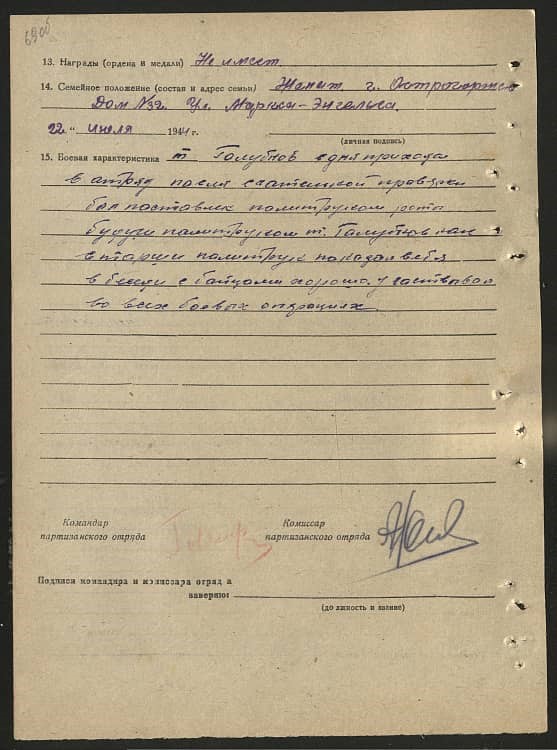 69об
13. Награды (ордена и медали) Не имеет.
14. Семейное положение (состав и адрес семьи) Женат г. Острогоржск
Дом №32. Ул. Маркса-Энгельса.
"22" июля 1944 г.
(личная подпись)
15. Боевая характеристика т. Голубцов с дня прихода
в атряд после
был поставлен политруком роты
будучи политруком т. Голубцов как
старши политрук показал себя
в бою с байцами хорошо. участвовал
во всех боевых операциях
Командир
партизанского отряда
Комиссар
партизанского отряда
Подписи командира и комиссара отряда
заверяю:
(должность и звание)